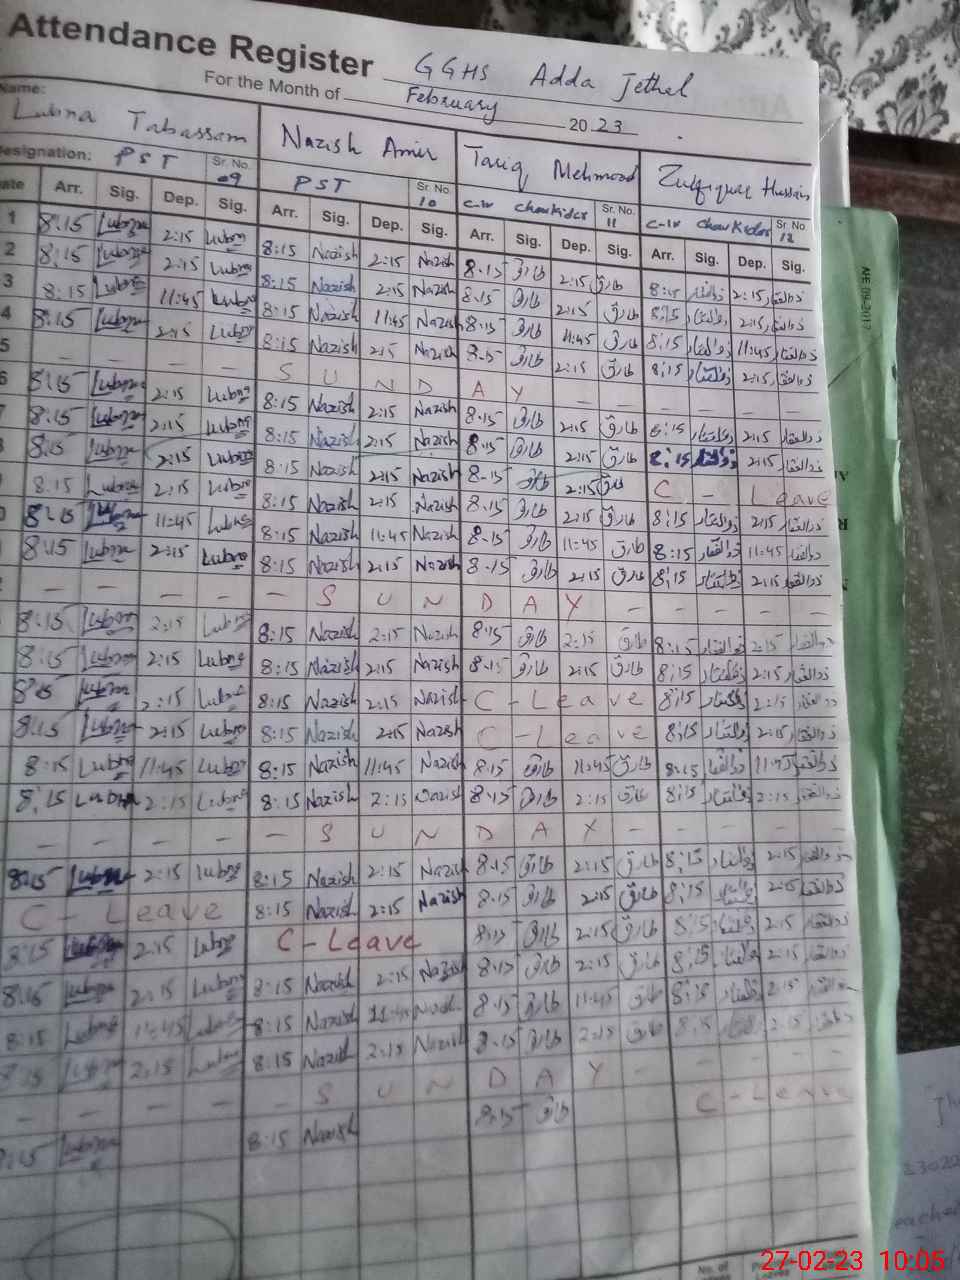 Attendance Register GGHS Adda Jethel
For the Month of February 2023
Name: Lubna Tabassam Nazish Amir Tariq Mehmood Zulfiqar Hussain
Designation: PST Sr. No. 09 PST Sr. No. 10 C-IV Chowkidor Sr. No. 11 C-IV Chowkidor Sr. No. 12
Date Arr. Sig. Dep. Sig. Arr. Sig. Dep. Sig. Arr. Sig. Dep. Sig. Arr. Sig. Dep. Sig.
1 8:15 Lubna 2:15 Lubna 8:15 Nazish 2:15 Nazish 8:15 طارق 2:15 طارق 8:15 ذوالفقار 2:15 ذوالفقار
2 8:15 Lubna 2:15 Lubna 8:15 Nazish 2:15 Nazish 8:15 طارق 2:15 طارق 8:15 ذوالفقار 2:15 ذوالفقار
3 8:15 Lubna 11:45 Lubna 8:15 Nazish 11:45 Nazish 8:15 طارق 11:45 طارق 8:15 ذوالفقار 11:45 ذوالفقار
4 8:15 Lubna 2:15 Lubna 8:15 Nazish 2:15 Nazish 8:15 طارق 2:15 طارق 8:15 ذوالفقار 2:15 ذوالفقار
5 – – – – S U N D A Y – – – – – –
6 8:15 Lubna 2:15 Lubna 8:15 Nazish 2:15 Nazish 8:15 طارق 2:15 طارق 8:15 ذوالفقار 2:15 ذوالفقار
8:15 Lubna 2:15 Lubna 8:15 Nazish 2:15 Nazish 8:15 طارق 2:15 طارق 8:15 ذوالفقار 2:15 ذوالفقار
8:15 Lubna 2:15 Lubna 8:15 Nazish 2:15 Nazish 8:15 طارق 2:15 طارق C - Leave
8:15 Lubna 2:15 Lubna 8:15 Nazish 2:15 Nazish 8:15 طارق 2:15 طارق 8:15 ذوالفقار 2:15 ذوالفقار
8:15 Lubna 11:45 Lubna 8:15 Nazish 11:45 Nazish 8:15 طارق 11:45 طارق 8:15 ذوالفقار 11:45 ذوالفقار
8:15 Lubna 2:15 Lubna 8:15 Nazish 2:15 Nazish 8:15 طارق 2:15 طارق 8:15 ذوالفقار 2:15 ذوالفقار
– – – – – S U N D A Y – – – – –
8:15 Lubna 2:15 Lubna 8:15 Nazish 2:15 Nazish 8:15 طارق 2:15 طارق 8:15 ذوالفقار 2:15 ذوالفقار
8:15 Lubna 2:15 Lubna 8:15 Nazish 2:15 Nazish 8:15 طارق 2:15 طارق 8:15 ذوالفقار 2:15 ذوالفقار
8:15 Lubna 2:15 Lubna 8:15 Nazish 2:15 Nazish C - Leave 8:15 ذوالفقار 2:15 ذوالفقار
8:15 Lubna 2:15 Lubna 8:15 Nazish 2:15 Nazish C - Leave 8:15 ذوالفقار 2:15 ذوالفقار
8:15 Lubna 11:45 Lubna 8:15 Nazish 11:45 Nazish 8:15 طارق 11:45 طارق 8:15 ذوالفقار 11:45 ذوالفقار
8:15 Lubna 2:15 Lubna 8:15 Nazish 2:15 Nazish 8:15 طارق 2:15 طارق 8:15 ذوالفقار 2:15 ذوالفقار
– – – – – S U N D A Y – – – – –
8:15 Lubna 2:15 Lubna 8:15 Nazish 2:15 Nazish 8:15 طارق 2:15 طارق 8:15 ذوالفقار 2:15 ذوالفقار
C - Leave 8:15 Nazish 2:15 Nazish 8:15 طارق 2:15 طارق 8:15 ذوالفقار 2:15 ذوالفقار
8:15 Lubna 2:15 Lubna C - Leave 8:15 طارق 2:15 طارق 8:15 ذوالفقار 2:15 ذوالفقار
8:15 Lubna 2:15 Lubna 8:15 Nazish 2:15 Nazish 8:15 طارق 2:15 طارق 8:15 ذوالفقار 2:15 ذوالفقار
8:15 Lubna 11:45 Lubna 8:15 Nazish 11:45 Nazish 8:15 طارق 11:45 طارق 8:15 ذوالفقار 2:15 ذوالفقار
8:15 Lubna 2:15 Lubna 8:15 Nazish 2:15 Nazish 8:15 طارق 2:15 طارق 8:15 2:15
– – – – – S U N D A Y – – – – –
8:15 Lubna 8:15 Nazish 8:15 طارق C - Leave
No. of
27-02-23 10:05